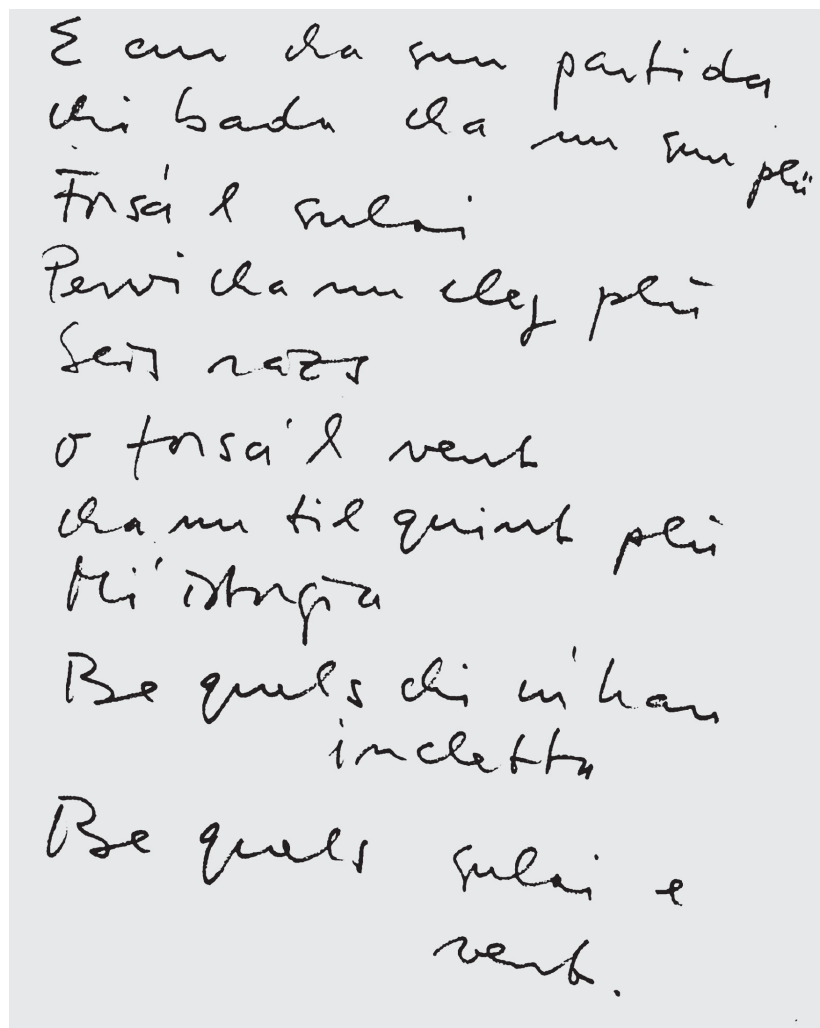 E cur cha sun partida
chi bada cha nu sun plü
Forsa'l sulai
Pervi cha nu cleg plü
Seis razs
o forsa'l vent
cha nu til quint plü
Mi'istorgia
Be quels chi m'han
incletta
Be quels sulai e
vent.